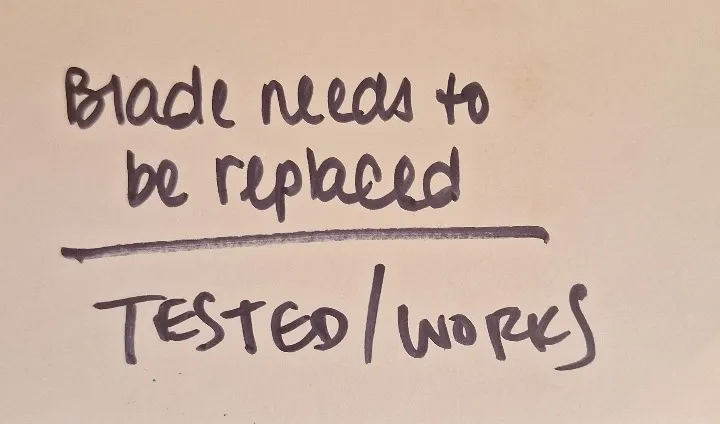 Blade needs to
be replaced
TESTED/WORKS